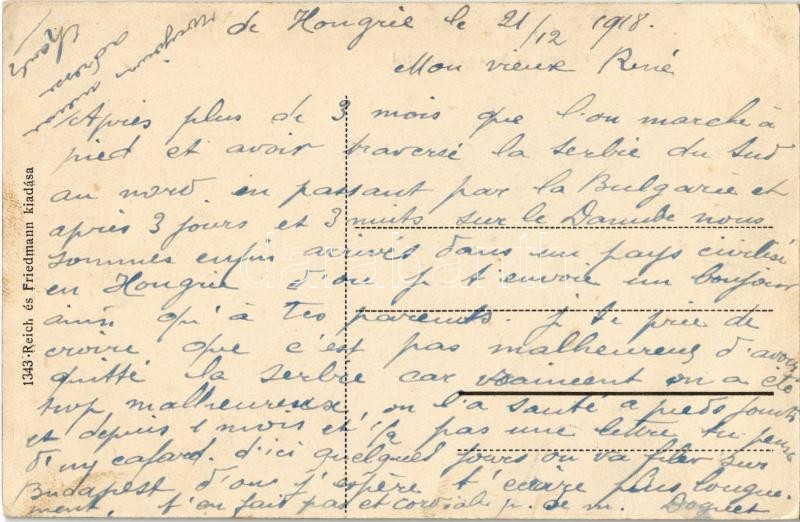 de Hongrie le 21/12 1918.
Mon vieux René
Après plus de 3 mois que l'on marche à
pied et avoir traversé la Serbie du Sud
au nord en passant par la Bulgarie et
après 3 jours et 3 nuits sur le Danube nous
sommes enfin arrivés dans un pays civilisé
en Hongrie d'ou je t envoie un bonjour
ainsi qu'à tes parents. je te prie de
croire que c'est pas malheureux d'avoir
quitté la Serbie car vraiment on a été
trop malheureux, on l'a sauté à pieds joints
et depuis 1 mois et 1/2 pas une lettre tu penses
d'un cafard. d'ici quelques jours on va filer sur
Budapest d'ou j'espère t'écrire plus longue-
ment, t'en fait pas et cordiale p. de m.
1343-Reich és Friedmann kiadása
darabanth